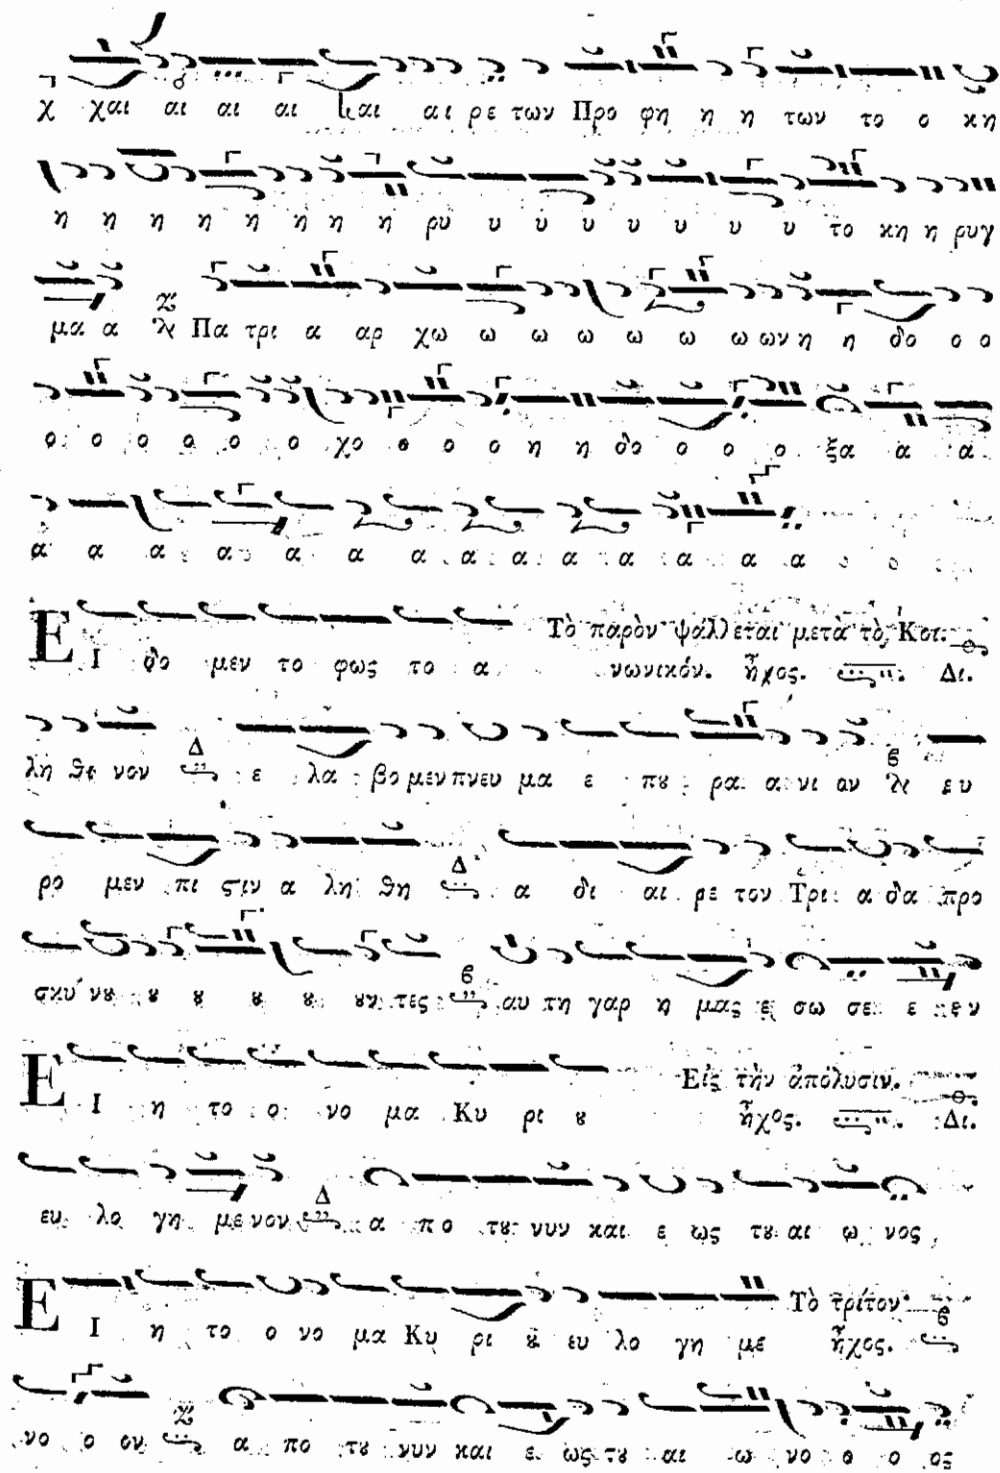 χ χαι αι αι αι και αι ρε των Προ φη η η των το ο κη
η η η η η η η η ρυ υ υ υ υ υ υ υ το κη η ρυγ
μα α Πα τρι α αρ χω ω ω ω ω ω ω ων η η δο ο ο
ο ο ο ο ο ο χο ο ο ο η η δο ο ο ο ξα α α
α α α α α α α α α α α α α
ΕΙ δο μεν το φως το α Τὸ παρὸν ψάλλεται μετὰ τὸ Κοι-
νωνικόν. ἦχος. Δι.
λη θι νον Δ ε λα βο μεν πνευ μα ε πȣ ρα α νι ον ευ
ρο μεν πι ϛιν α λη θη Δ α δι αι ρε τον Τρι α δα προ
σκυ νȣ ȣ ȣ ȣ ȣ ȣν τες αυ τη γαρ η μας ε σω σε ε εν
ΕΙ η το ο νο μα Κυ ρι ȣ Εἰς τὴν ἀπόλυσιν.
ἦχος. Δι.
ευ λο γη με νον Δ α πο τȣ νυν και ε ως τȣ αι ω νος
ΕΙ η το ο νο μα Κυ ρι ȣ ευ λο γη με Τὸ τρίτον
ἦχος.
νο ο ον α πο τȣ νυν και ε ως τȣ αι ω νο ο ο ος